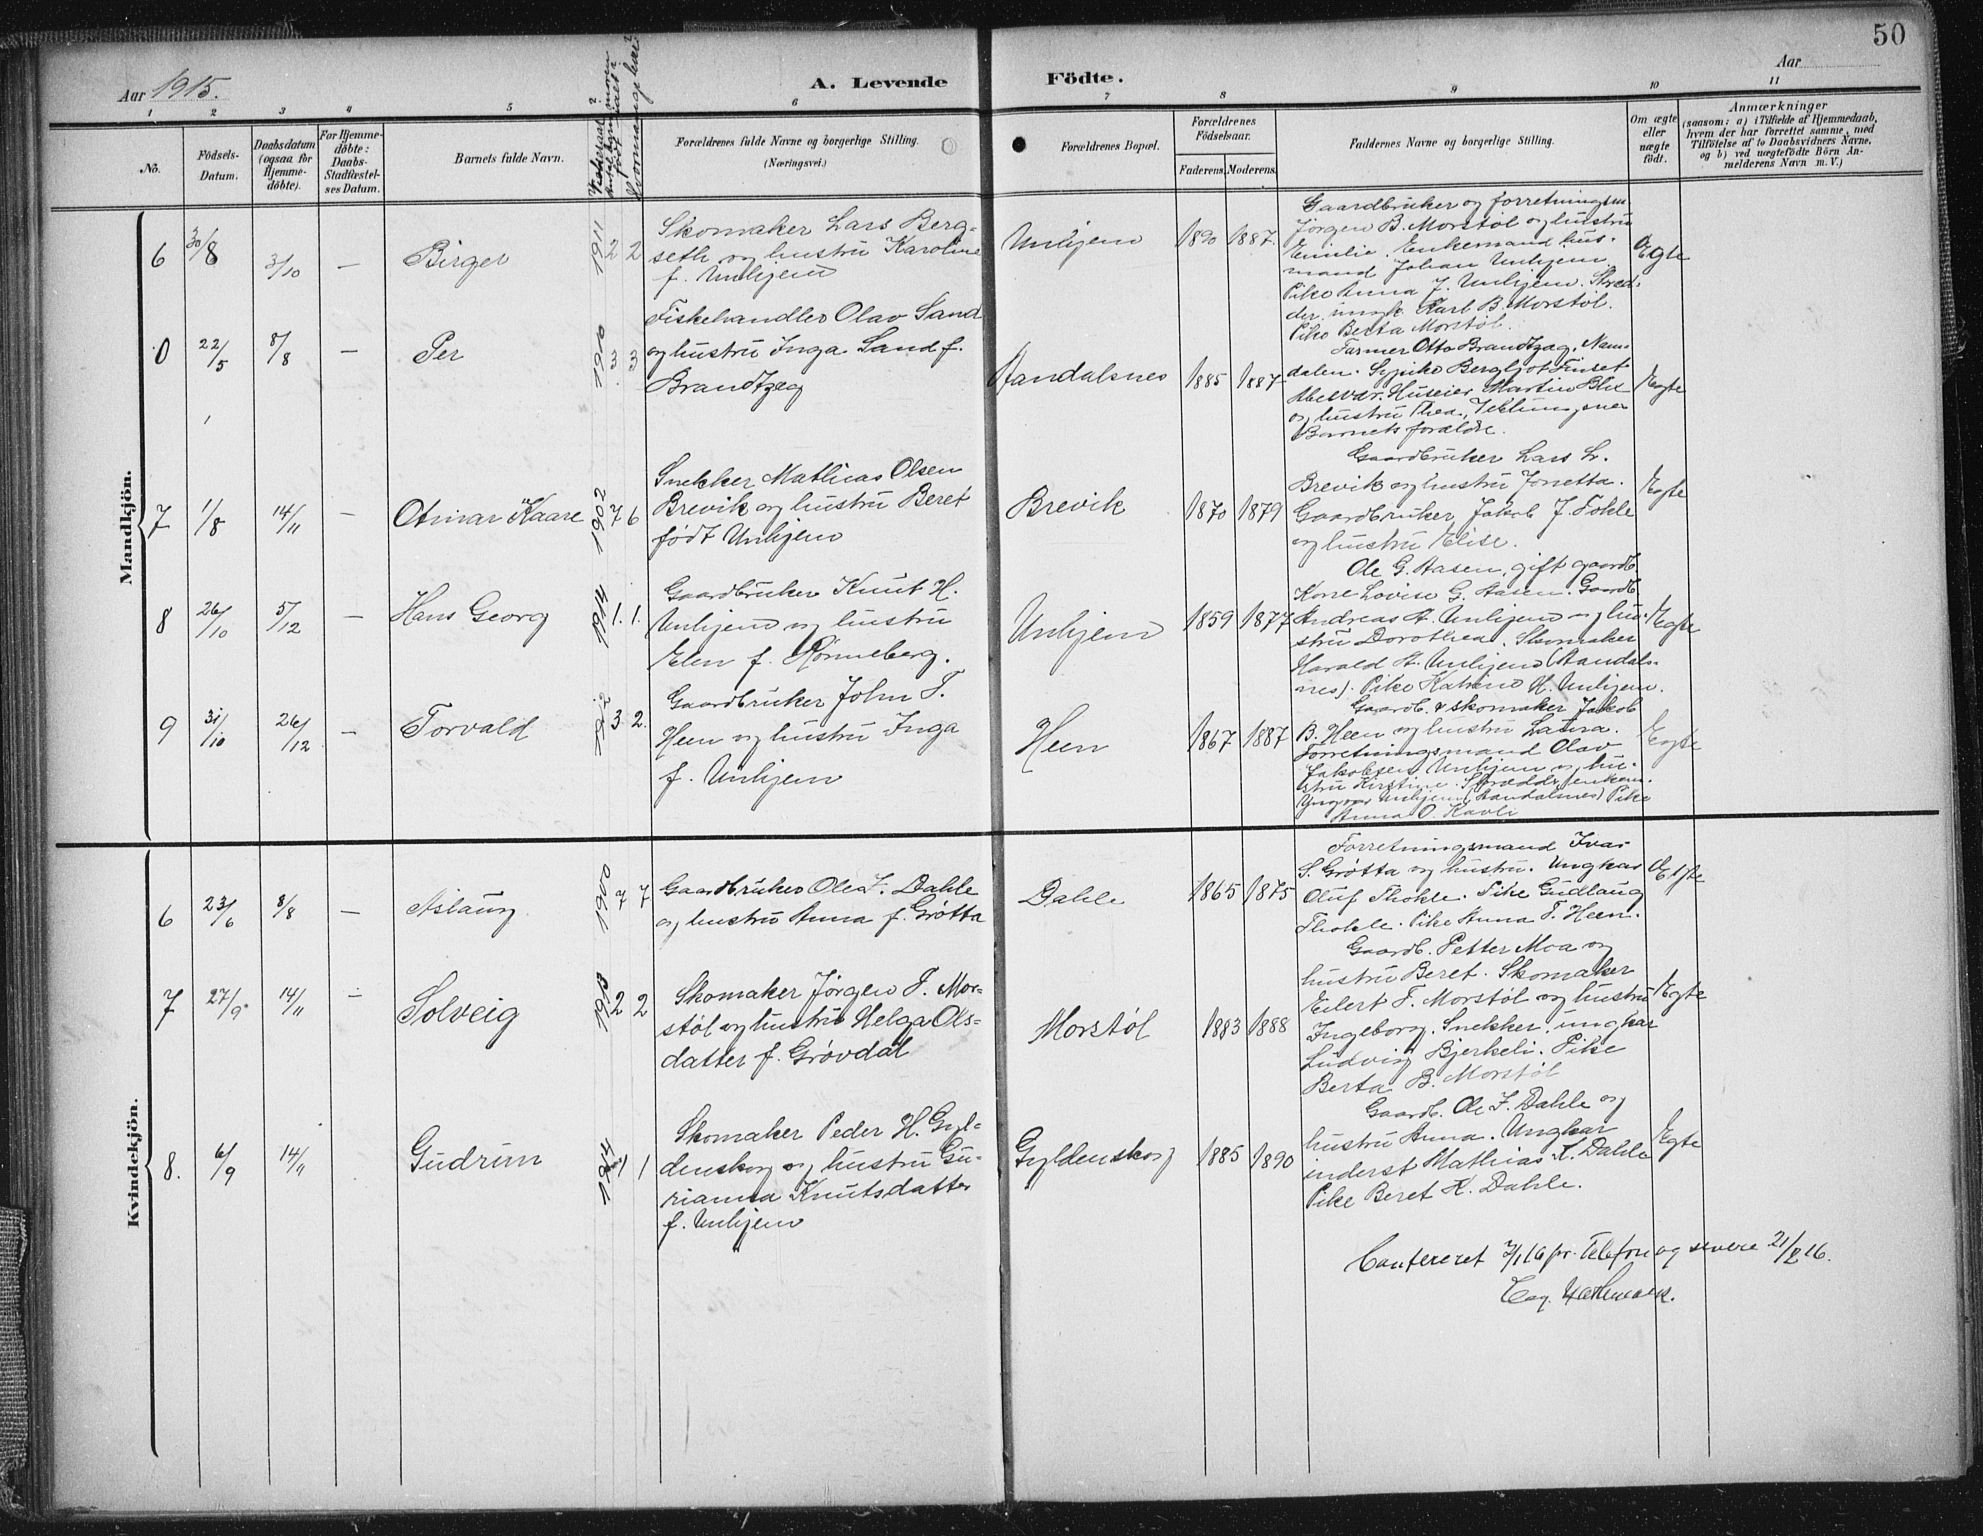 50
Aar 1915.
A. Levende Födte.
Aar
1 2 3 4 5 6 7 8 9 10 11
No.
Födsels-
Datum.
Daabsdatum
(ogsaa for
Hjemme-
döbte).
For Hjemme-
döbte:
Daabs-
Stadfæstel-
ses Datum.
Barnets fulde Navn.
Forældrenes fulde Navne og borgerlige Stilling.
(Næringsvei.)
Forældrenes Bopæl.
Forældrenes
Födselsaar.
Faderens. Moderens.
Faddernes Navne og borgerlige Stilling.
Om ægte
eller
uægte
födt.
Anmærkninger
(saasom: a) i Tilfælde af Hjemmedaab,
hvem der har forrettet samme, med
Tilföielse af to Daabsvidners Navne,
og b) ved uægtefödte Börn An-
melderens Navn m. V.)
Mandkjön.
6 30/8 3/10 — Birger 1911 2 2
Skomaker Lars Berg-
seth og hustru Karoline
f. Unhjem
Unhjem 1890 1887.
Gaardbruker og forretningsm
Jörgen B. Morstöl og hustru
Emilie. Enkemand hus-
mand Johan Unhjem
Pike Anna J. Unhjem. Skræd-
der, ungk. Karl B. Morstöl.
Pike Berta Morstöl.
Egte
0 22/5 8/8 — Per 1910 3 3
Fiskehandler Olav Sand
og hustru Inga Sand f.
Brandtzæg
Aandalsnes 1885 1887
Farmer Otto Brandtzæg, Nam-
dalen. Sypike Bergljot Finset
Huseier Martin Blix
og hustru Thea,
Barnets forældre.
Egte
7 1/8 14/11 — Kaare 1902 7 6
Snekker Mathias Olsen
Brevik og hustru Beret
født Unhjem
Brevik 1870 1879
Gaardbruker Lars L.
Brevik og hustru Jonetta.
Gaardbruker Jakob J. Tokle
og hustru Elise.
Egte
8 26/10 5/12 — Hans Georg 1914 1. 1.
Gaardbruker Knut H.
Unhjem og hustru
Elen f. Rønneberg.
Unhjem 1859 1877
Ole G. Aasen, gift gaardb.
Kone Lovise G. Aasen. Gaardb.
Andreas A. Unhjem og hus-
stru Dorothea. Skomaker
Harald H. Unhjem (Aandals-
nes). Pike Katrine H. Unhjem.
Egte
9 31/10 26/12 — Torvald 1912 3. 2.
Gaardbruker John T.
Heen og hustru Inga
f. Unhjem
Heen 1867 1887
Gaardb. & skomaker Jakob
B. Heen og hustru Laura.
Forretningsmand Olav
Jakobsen Unhjem og hu-
stru Kirstine. Skrædder, enkem.
Yngvar Unhjem (Aandalsnes) Pike
Anna O Kavli
Egte
Kvindekjön.
6 23/6 8/8 — Aslaug 1900 7 7
Gaardbruker Ole J. Dahle
og hustru Anna f. Grøtta
Dahle 1865 1875
Forretningsmand Ivar
S. Grøtta og hustru. Ungkar
Oluf Thokle. Pike Gudlaug
Thokle. Pike Anna T. Heen.
Egte
7 27/9 14/11 — Solveig 1913 2 2
Skomaker Jørgen T. Mor-
støl og hustru Helga Ols-
datter f. Grøvdal
Morstøl 1883 1888
Gaardb. Petter Moa og
hustru Beret. Skomaker
Eilert T. Morstøl og hustru
Ingeborg. Snekker, ungkar
Ludvig Bjerkeli. Pike
Berta B. Morstöl
Egte
8. 6/9 14/11 Gudrun 1914 1 1
Skomaker Peder H. Gyl-
denskog og hustru Gu-
rianna Knutsdatter
f. Unhjem
Gyldenskog 1885 1890
Gaardb. Ole J. Dahle og
hustru Anna. Ungkar
underst Mathias K. Dahle
Pike Beret K. Dahle.
Egte
pr. Telefon og senere 21/2 16.